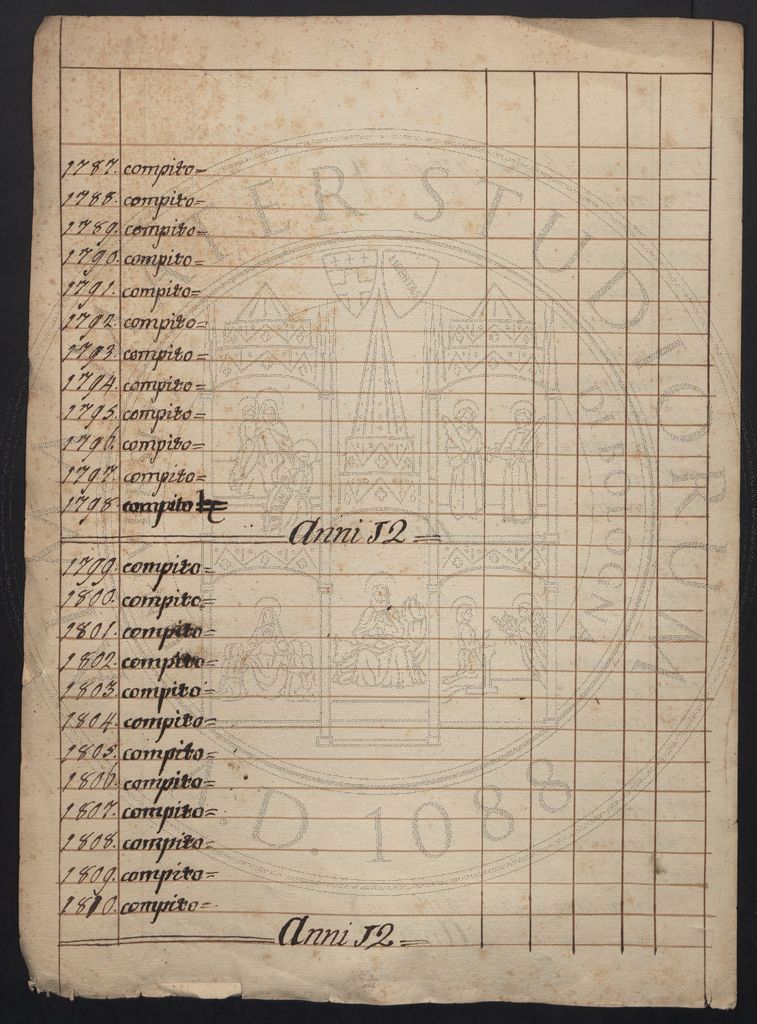 1787. compito=
1788. compito=
1789. compito=
1790. compito=
1791. compito=
1792. compito=
1793. compito=
1794. compito=
1795. compito=
1796. compito=
1797. compito=
1798. compito=
Anni 12=
1799. compito=
1800. compito=
1801. compito=
1802. compito=
1803. compito=
1804. compito=
1805. compito=
1806. compito=
1807. compito=
1808. compito=
1809. compito=
1810. compito=
Anni 12=
ALMA MATER STUDIORUM
A.D. 1088
DI BOLOGNA
LIBERTAS